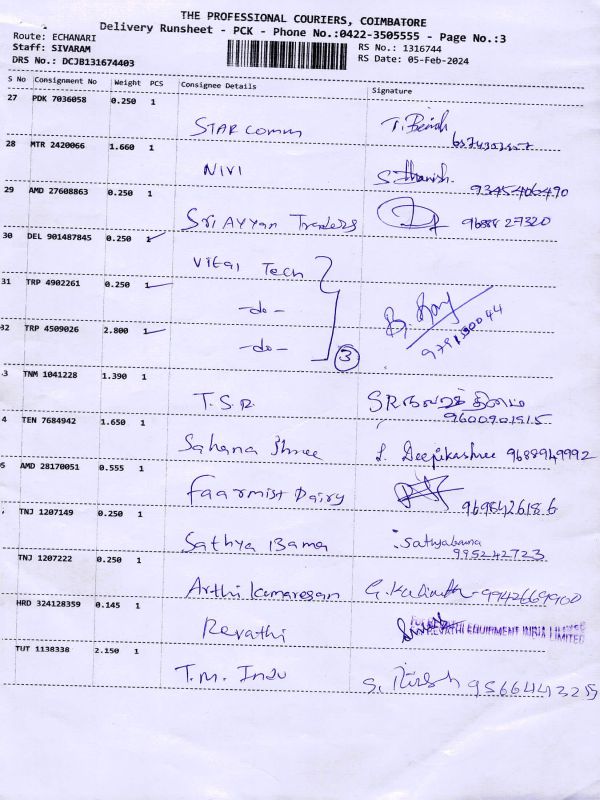 THE PROFESSIONAL COURIERS, COIMBATORE
Delivery Runsheet - PCK - Phone No.:0422-3505555 - Page No.:3
Route: ECHANARI
Staff: SIVARAM
DRS No.: DCJB131674403
RS No.: 1316744
RS Date: 05-Feb-2024
S No Consignment No Weight PCS Consignee Details Signature
27 PDK 7036058 0.250 1
STAR comm
28 MTR 2420066 1.660 1
NIVI
9345406490
29 AMD 27608863 0.250 1
Sri AYYan Traders 9688827320
30 DEL 901487845 0.250 1
Vital Tech
31 TRP 4902261 0.250 1
-do-
32 TRP 4509026 2.800 1
-do- 3
3 TNM 1041228 1.390 1
T.S.R.
9600901515
4 TEN 7684942 1.650 1
Sahana Shree L. Deepikashree 9688949992
5 AMD 28170051 0.555 1
Faarmist Dairy
969842618.6
TNJ 1207149 0.250 1
Sathya Bama Sathyabama
995242723
TNJ 1207222 0.250 1
Arthi Kumaresan 9942669900
HRD 324128359 0.145 1
Revathi REVATHI EQUIPMENT INDIA LIMITED
TUT 1138338 2.150 1
T.M. Indu